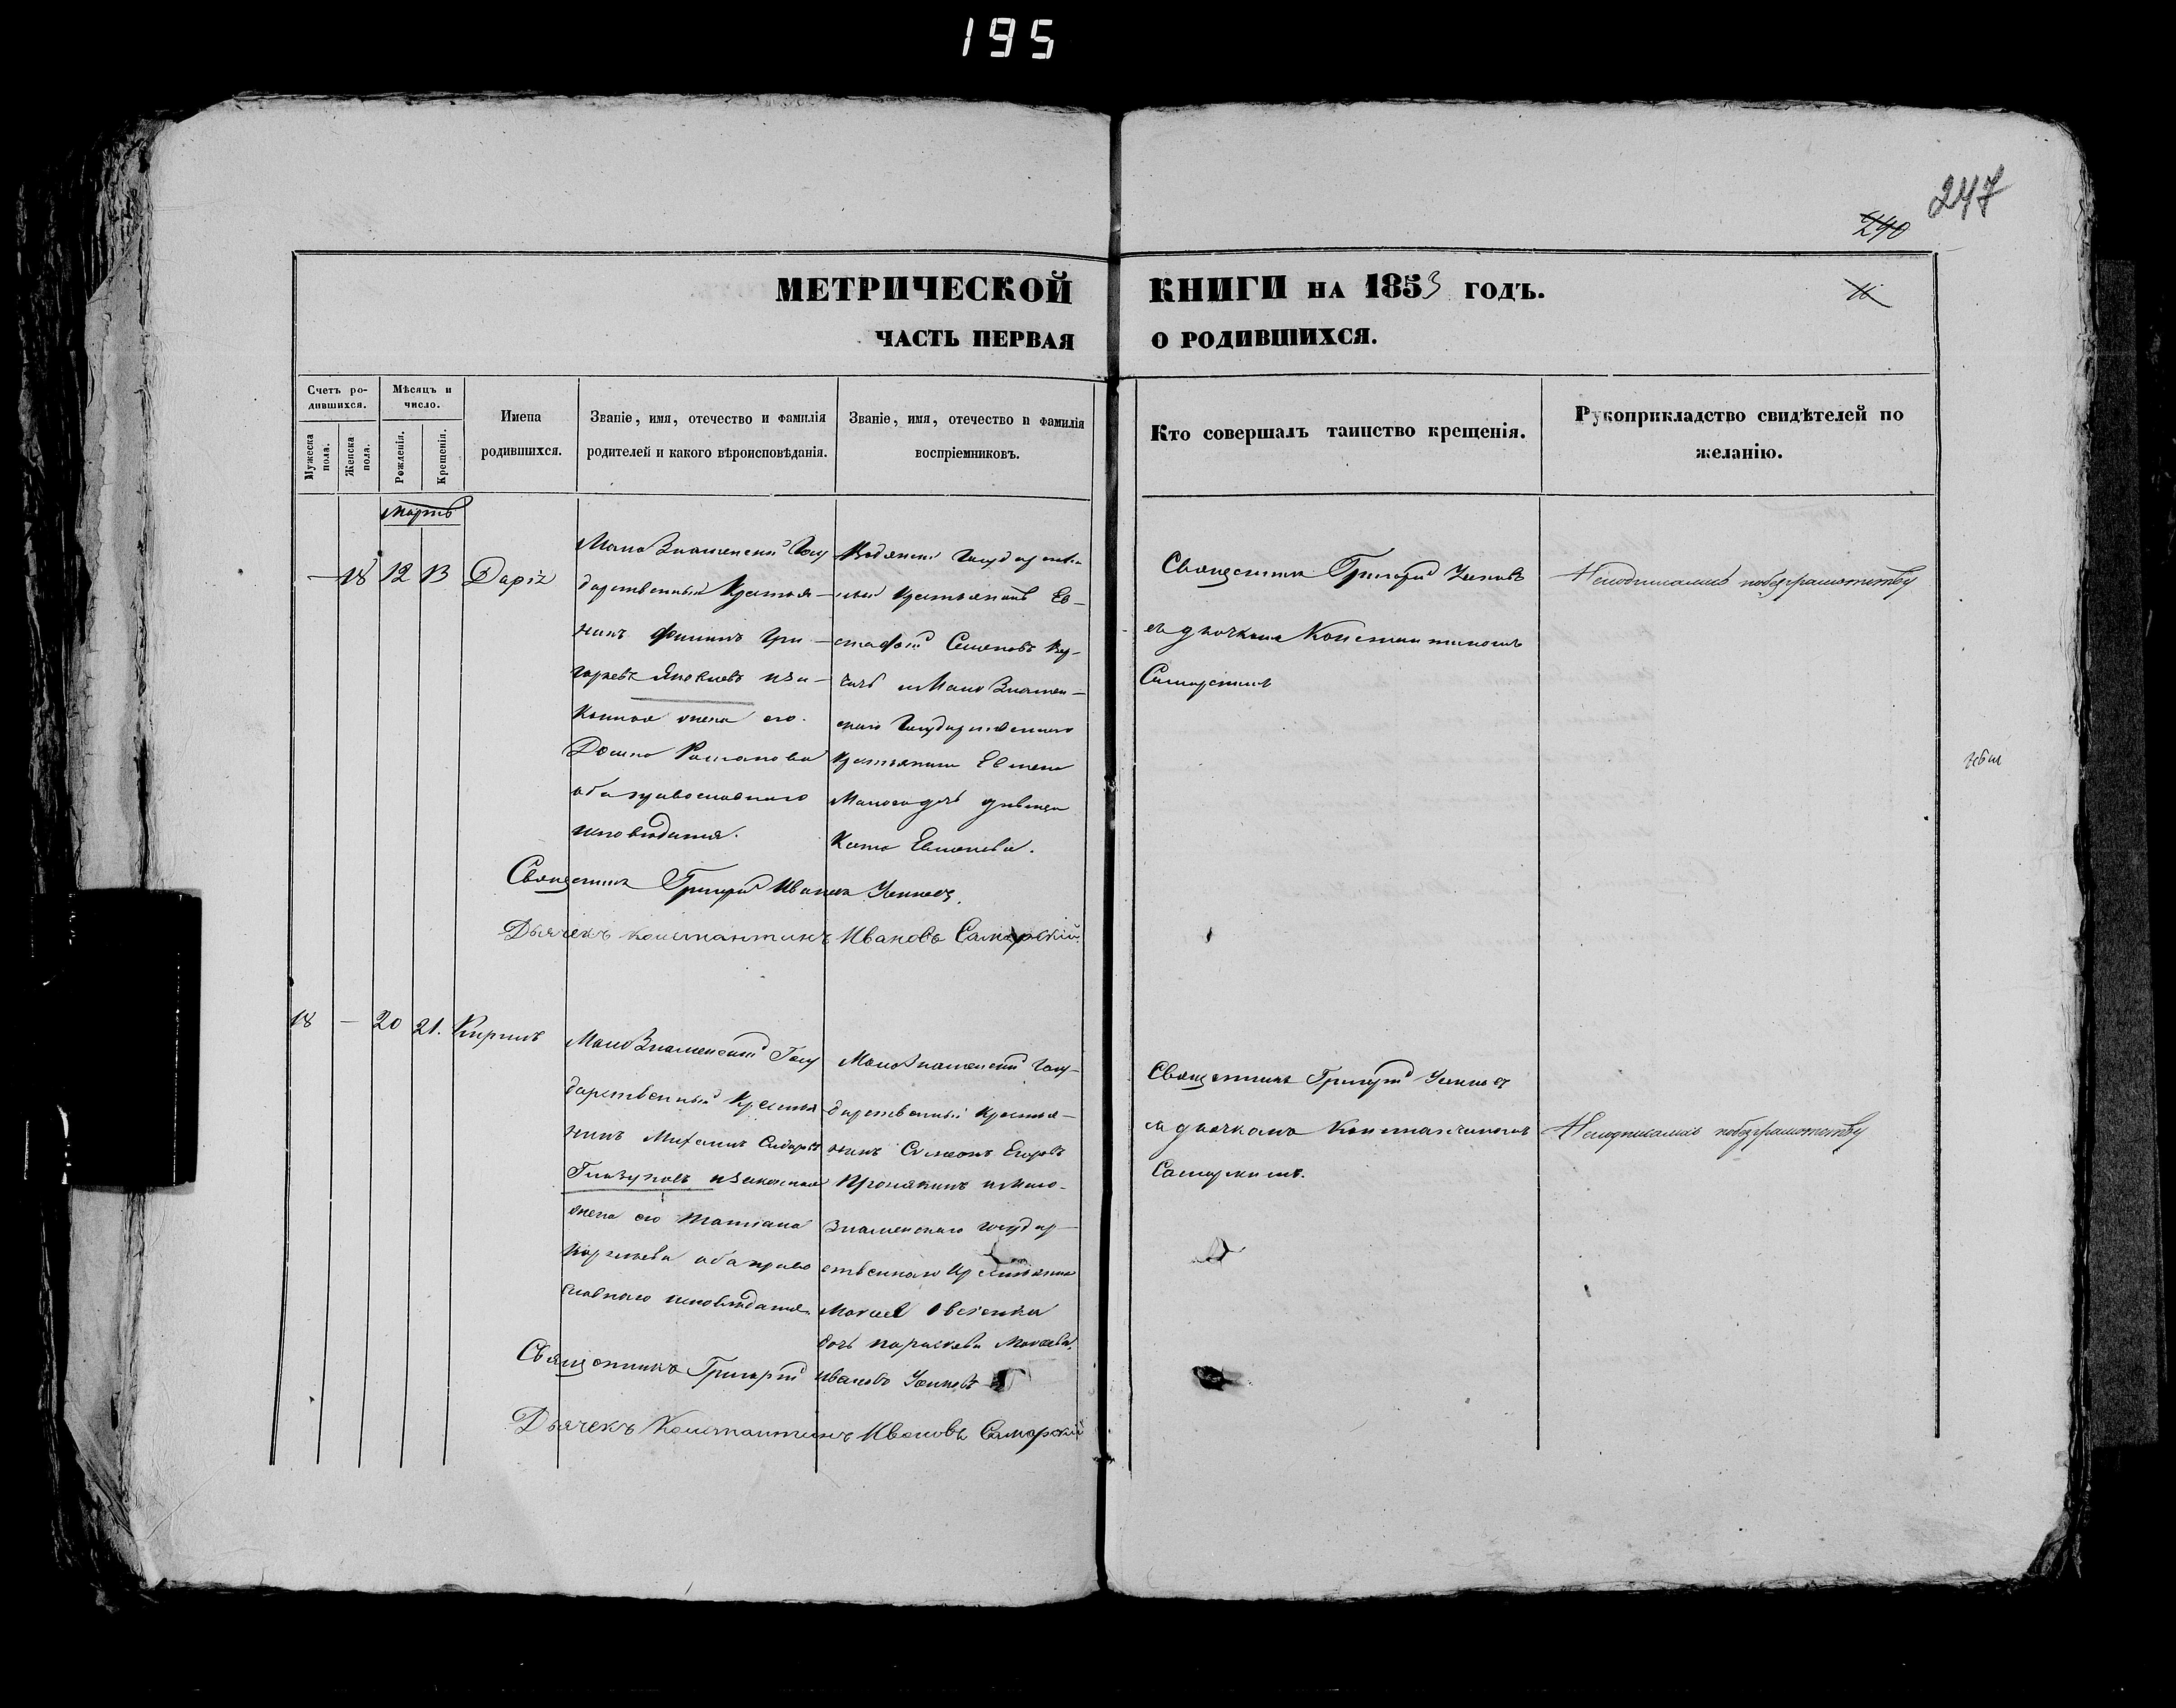 195
247
240
МЕТРИЧЕСКОЙ КНИГИ НА 1853 ГОДЪ.
ЧАСТЬ ПЕРВАЯ О РОДИВШИХСЯ.
Счетъ ро-
дившихся.
Мужеска пола.
Женска пола.
Мѣсяцъ и
число.
Рожденія.
Крещенія.
Имена
родившихся.
Званіе, имя, отечество и фамилія
родителей и какого вѣроисповѣданія.
Званіе, имя, отечество и фамилія
воспріемниковъ.
Кто совершалъ таинство крещенія.
Рукоприкладство свидѣтелей по
желанію.
Мартъ
— 18 12 13 Дарія
МалоЗнаменскій Госу
дарственный Крестья-
нинъ Филипъ Гри-
горьевъ Яковлевъ иза-
конная жена его
Домна Романова
оба православнаго
исповѣданія.
Водянскій Государстве
нный Крестьянинъ Ев-
стафій Семеновъ
и МалоЗнамен-
скаго Государственнаго
Крестьянина
дѣвица
Священникъ Григорій
съ дьячкомъ Константиномъ
Самарскимъ
Неподписались побезграмотству
Священникъ Григорій Ивановъ
Дьячекъ Константинъ Ивановъ Самарскій
18 — 20 21. Кирилъ
МалоЗнаменскій Госу
дарственный Крестья
нинъ Михаилъ Сидоровъ
Глазуновъ изаконная
жена его Татіана
оба право
славнаго исповѣданія
МалоЗнаменскій Госу-
дарственный Крестья-
нинъ Симеонъ Егоровъ
Пронякинъ и Мало-
Знаменскаго Государ-
ственнаго Крестьянина
Мокея Овсенка
дочь Параскева Мокеева.
Священникъ Григорій
съ дьячкомъ Константиномъ
Самарскимъ.
Неподписались побезграмотству
Священникъ Григорій Ивановъ
Дьячекъ Константинъ Ивановъ Самарскій